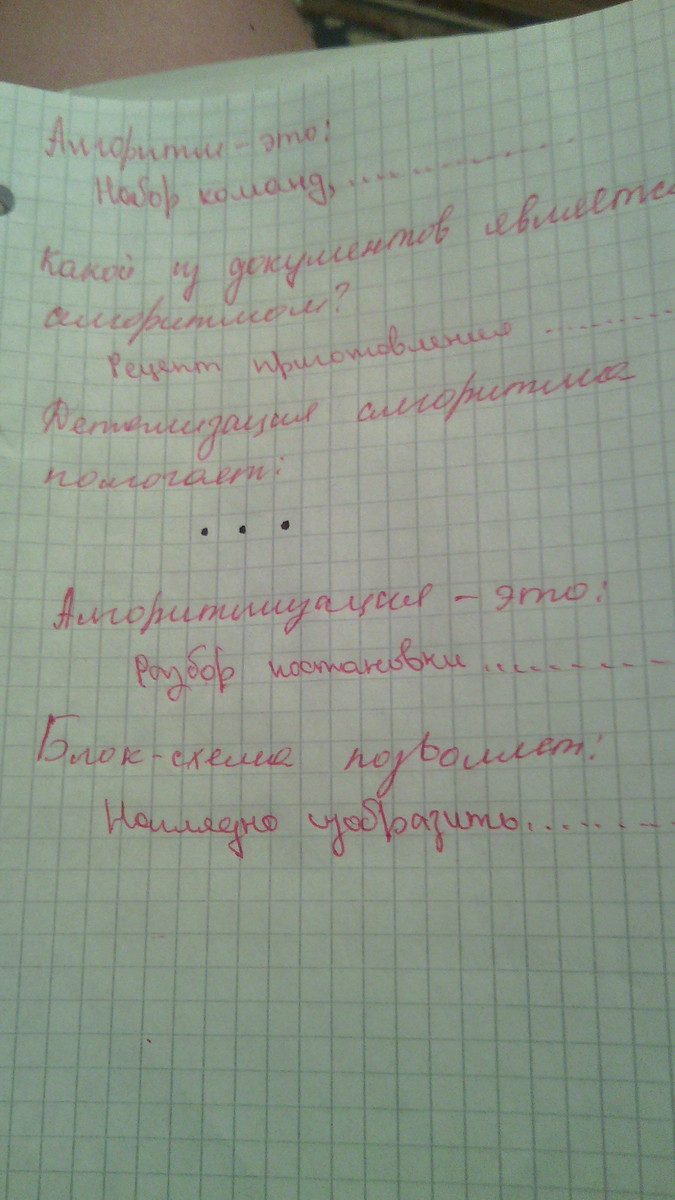 Алгоритм - это:
Набор команд, ................
Какой из документов является
алгоритмом?
Рецепт приготовления ..........
Детализация алгоритма
помогает:
. . .
Алгоритмизация - это:
Разбор постановки ..........
Блок-схема позволяет:
Наглядно изобразить..........